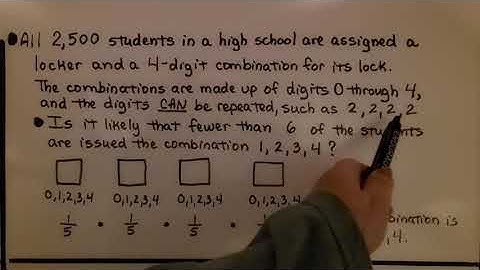 ●All 2,500 students in a high school are assigned a
locker and a 4-digit combination for its lock.
The combinations are made up of digits 0 through 4,
and the digits CAN be repeated, such as 2,2,2,2
●Is it likely that fewer than 6 of the students
are issued the combination 1,2,3,4?
0,1,2,3,4 0,1,2,3,4 0,1,2,3,4 0,1,2,3,4
1/5 · 1/5 · 1/5 · 1/5 is
4.